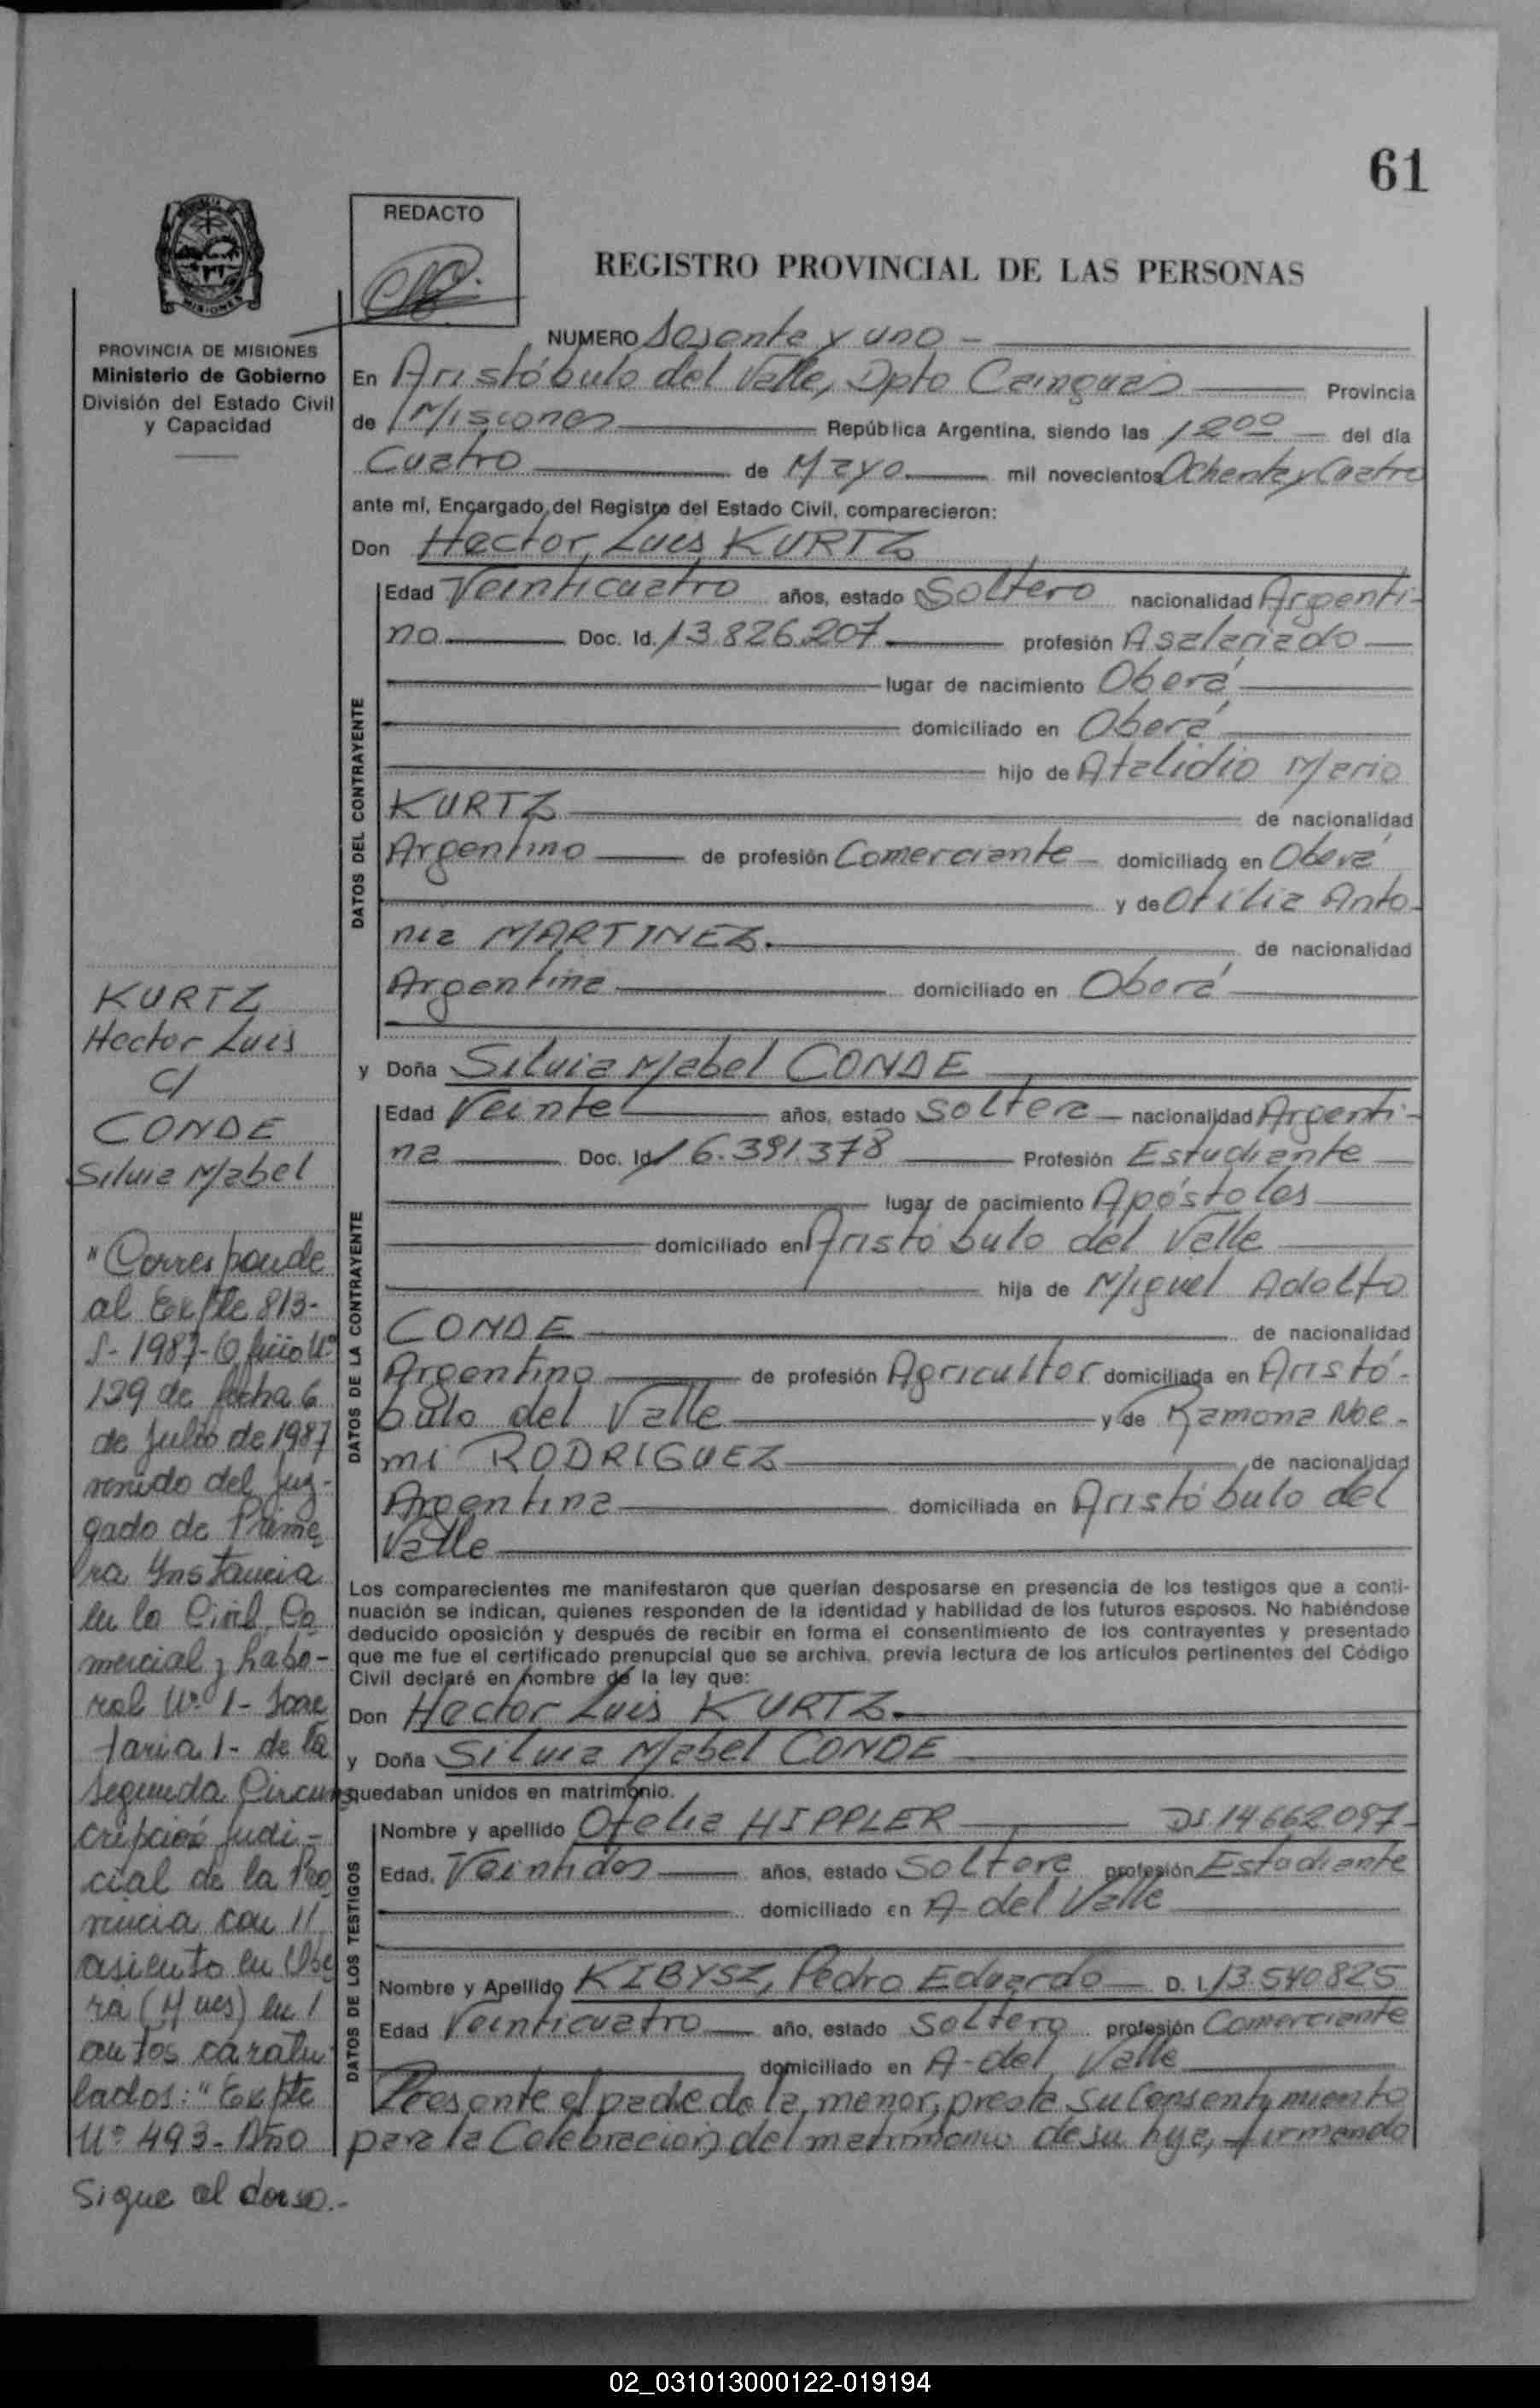 61
REDACTO
REGISTRO PROVINCIAL DE LAS PERSONAS
MISIONES
PROVINCIA DE MISIONES
Ministerio de Gobierno
División del Estado Civil
y Capacidad
NUMERO Sesenta y uno -
En Aristóbulo del Valle, Dpto Cainguas Provincia
de Misiones República Argentina, siendo las 12⁰⁰ del día
Cuatro de Mayo mil novecientos Ochenta y Cuatro
ante mí, Encargado del Registro del Estado Civil, comparecieron:
Don Hector Luis KURTZ
DATOS DEL CONTRAYENTE
Edad Veinticuatro años, estado Soltero nacionalidad Argenti-
no Doc. Id. 13.826.207 profesión Asalariado
lugar de nacimiento Oberá
domiciliado en Oberá
hijo de Atalidio Mario
KURTZ de nacionalidad
Argentino de profesión Comerciante domiciliado en Oberá
y de Otilia Anto-
nia MARTINEZ. de nacionalidad
Argentina domiciliado en Oberá
y Doña Silvia Mabel CONDE
DATOS DE LA CONTRAYENTE
Edad Veinte años, estado Soltera nacionalidad Argenti-
na Doc. Id 16.391.378 Profesión Estudiante
lugar de nacimiento Apóstoles
domiciliado en Aristóbulo del Valle
hija de Miguel Adolfo
CONDE de nacionalidad
Argentino de profesión Agricultor domiciliada en Aristó-
bulo del Valle y de Ramona Noe-
mi RODRIGUEZ de nacionalidad
Argentina domiciliada en Aristóbulo del
Valle
Los comparecientes me manifestaron que querían desposarse en presencia de los testigos que a conti-
nuación se indican, quienes responden de la identidad y habilidad de los futuros esposos. No habiéndose
deducido oposición y después de recibir en forma el consentimiento de los contrayentes y presentado
que me fue el certificado prenupcial que se archiva, previa lectura de los artículos pertinentes del Código
Civil declaré en nombre de la ley que:
Don Hector Luis KURTZ.
y Doña Silvia Mabel CONDE
quedaban unidos en matrimonio.
DATOS DE LOS TESTIGOS
Nombre y apellido Ofelia HIPPLER DI. 14.662.097-
Edad, Veintidos años, estado Soltera profesión Estudiante
domiciliado en A- del Valle
Nombre y Apellido KIBYSZ, Pedro Eduardo D. I. 13.540.825
Edad Veinticuatro año, estado Soltero profesión Comerciante
domiciliado en A- del Valle
Presente el padre de la menor, presta su Consentimiento
para la Celebracion del matrimonio de su hija, firmando
KURTZ
Hector Luis
c/
CONDE
Silvia Mabel
"Corresponde
al Expte 813-
S- 1987- Oficio Nº
129 de fecha 6
de Julio de 1987
venido del Juz-
gado de Prime
ra Instancia
en lo Civil, Co
mercial y Labo-
ral Nº 1- Secre
taria 1- de la
Segunda Circuns
cripción Judi-
cial de la Pro
vincia con //
asiento en Obe
rá (Mnes) en /
autos caratu
lados: "Expte
Nº 493- Año
Sigue al dorso.-
02_031013000122-019194